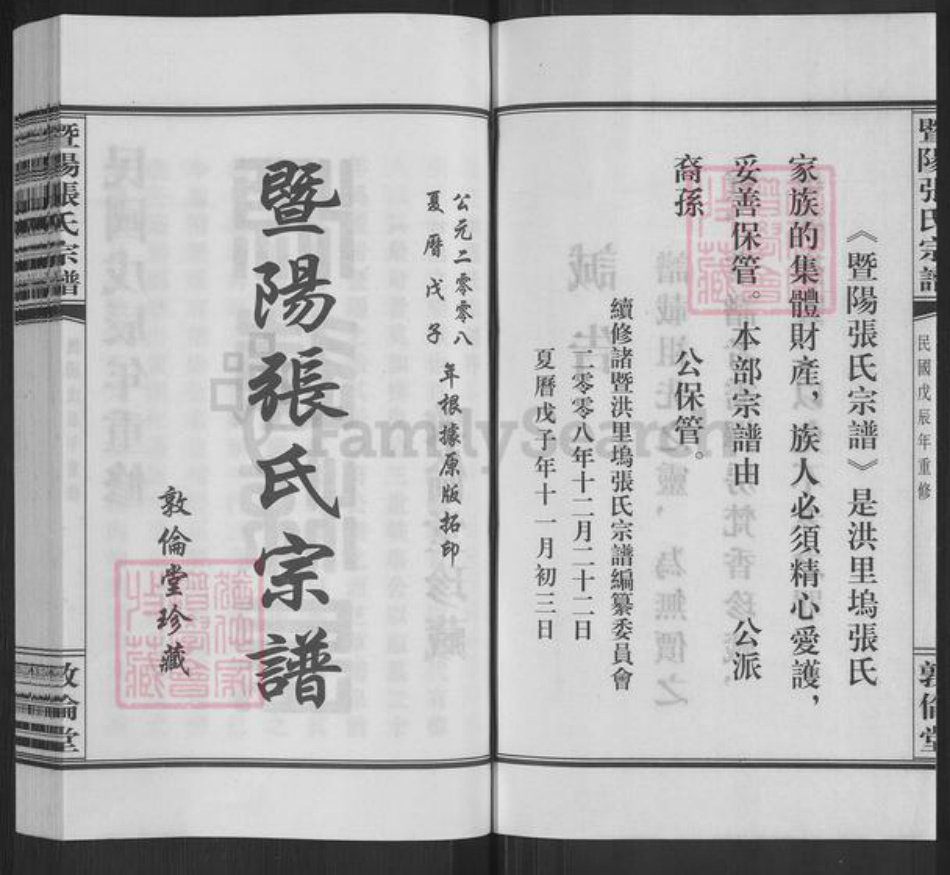 暨陽張氏宗譜
民國戊辰年重修
敦倫堂
《暨陽張氏宗譜》是洪里塢張氏
家族的集體財產，族人必須精心愛護，
妥善保管。本部宗譜由　公派
裔孫　公保管。
續修諸暨洪里塢張氏宗譜編纂委員會
二零零八年十二月二十二日
夏曆戊子年十一月初三日
公元二零零八
夏曆戊子
年根據原版拓印
暨陽張氏宗譜
敦倫堂珍藏
暨陽張氏宗譜
敦倫堂
FamilySearch